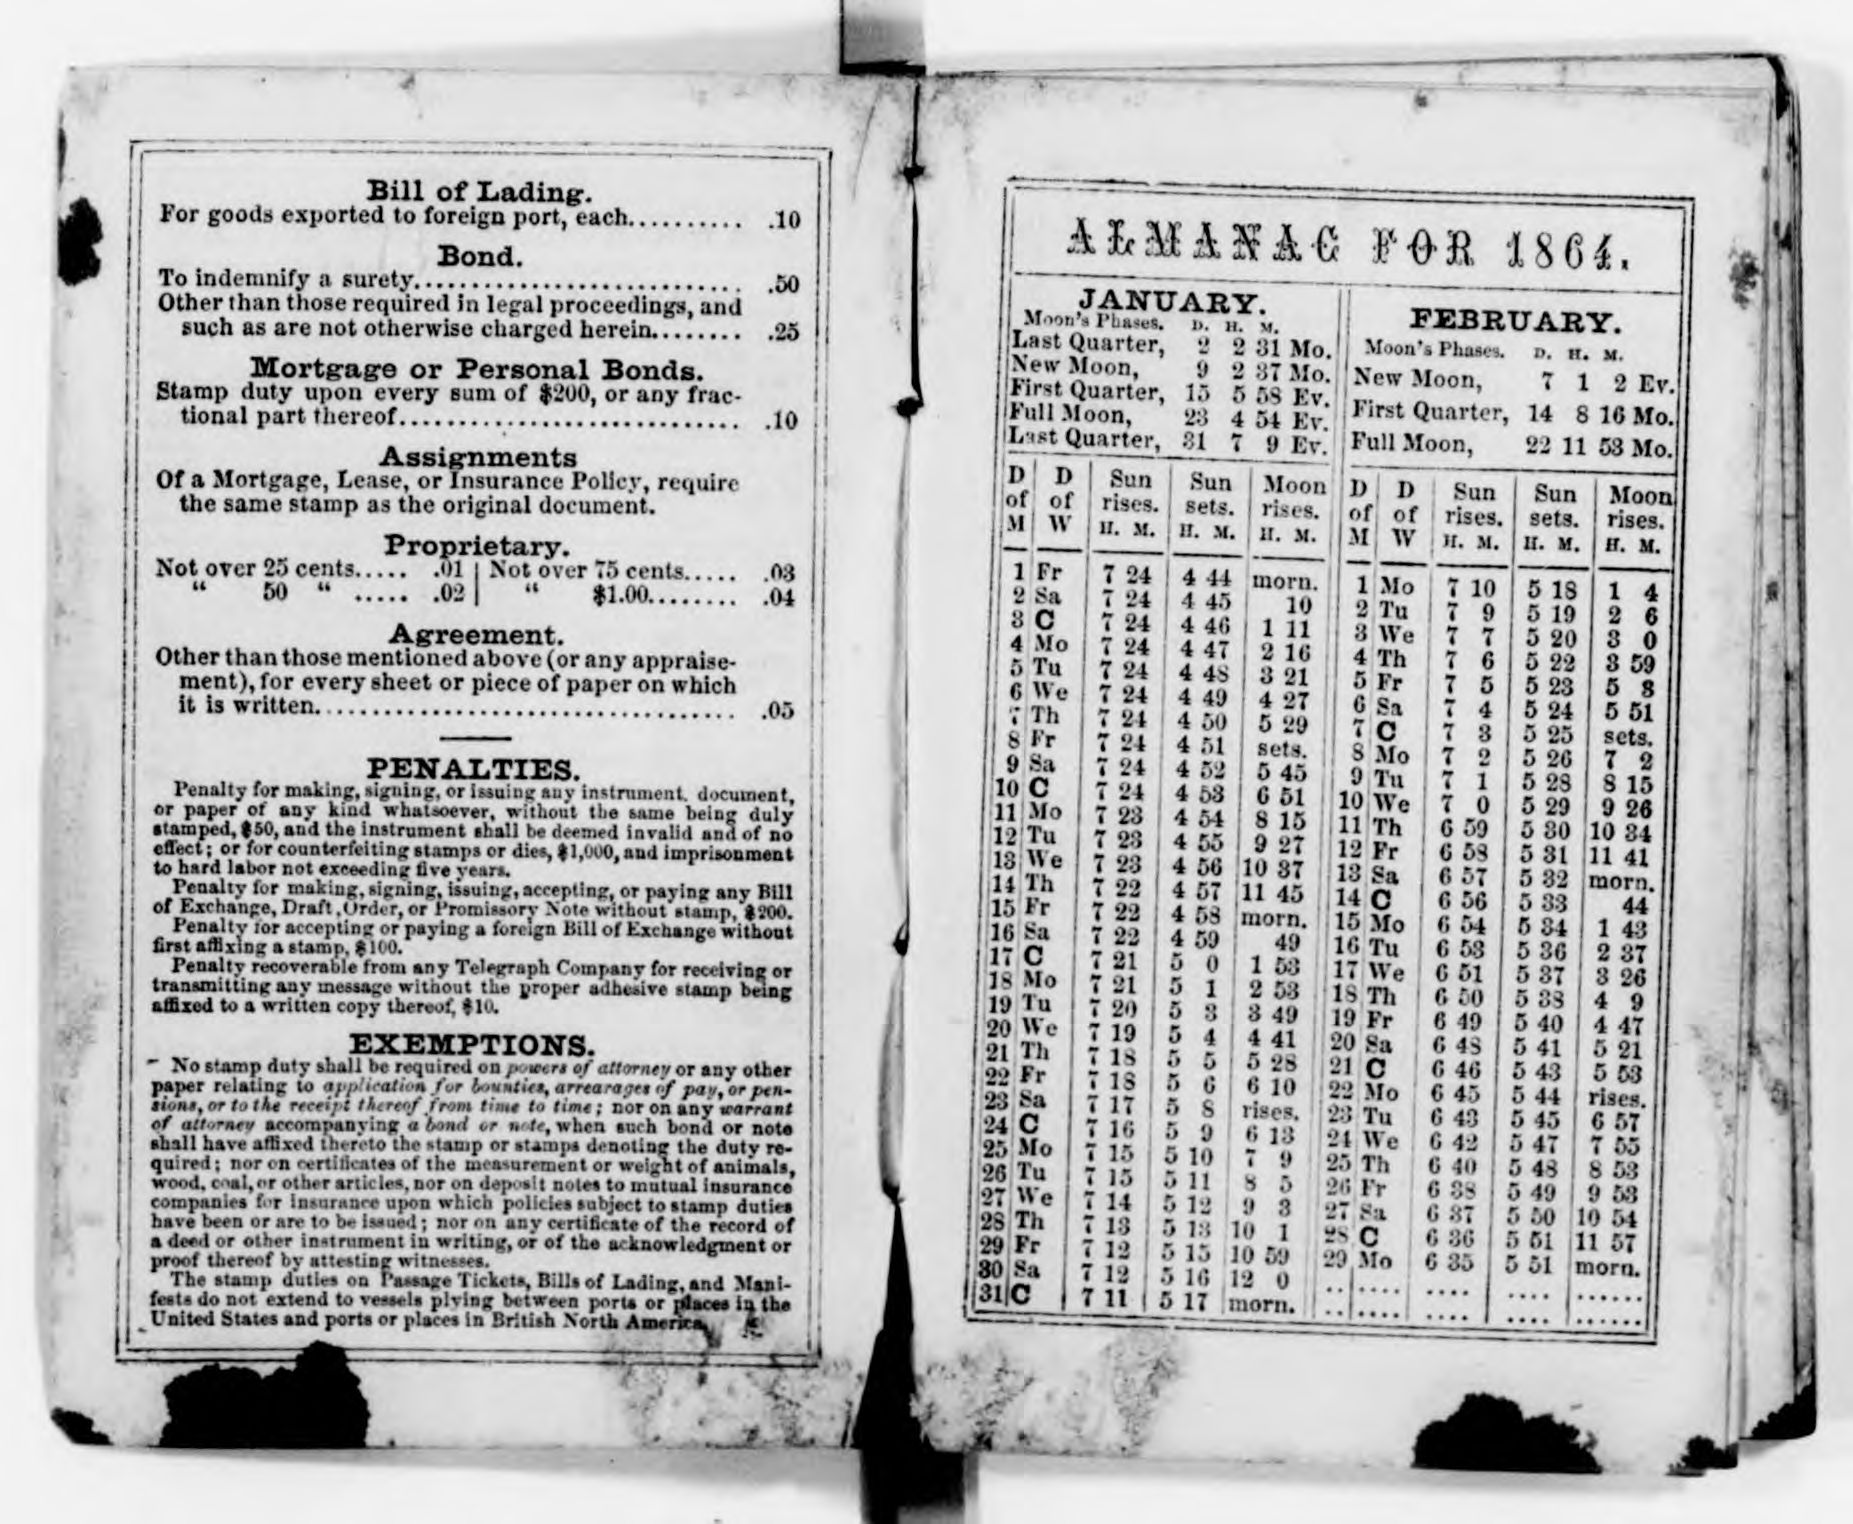 Bill of Lading.
For goods exported to foreign port, each.......... .10
Bond.
To indemnify a surety............................ .50
Other than those required in legal proceedings, and
such as are not otherwise charged herein........ .25
Mortgage or Personal Bonds.
Stamp duty upon every sum of $200, or any frac-
tional part thereof............................. .10
Assignments
Of a Mortgage, Lease, or Insurance Policy, require
the same stamp as the original document.
Proprietary.
Not over 25 cents..... .01 | Not over 75 cents..... .03
“ 50 “ ..... .02 | “ $1.00........ .04
Agreement.
Other than those mentioned above (or any appraise-
ment), for every sheet or piece of paper on which
it is written.................................... .05
PENALTIES.
Penalty for making, signing, or issuing any instrument. document,
or paper of any kind whatsoever, without the same being duly
stamped, $50, and the instrument shall be deemed invalid and of no
effect; or for counterfeiting stamps or dies, $1,000, and imprisonment
to hard labor not exceeding five years.
Penalty for making, signing, issuing, accepting, or paying any Bill
of Exchange, Draft, Order, or Promissory Note without stamp, $200.
Penalty for accepting or paying a foreign Bill of Exchange without
first affixing a stamp, $100.
Penalty recoverable from any Telegraph Company for receiving or
transmitting any message without the proper adhesive stamp being
affixed to a written copy thereof, $10.
EXEMPTIONS.
No stamp duty shall be required on powers of attorney or any other
paper relating to application for bounties, arrearages of pay, or pen-
sions, or to the receipt thereof from time to time; nor on any warrant
of attorney accompanying a bond or note, when such bond or note
shall have affixed thereto the stamp or stamps denoting the duty re-
quired; nor on certificates of the measurement or weight of animals,
wood, coal, or other articles, nor on deposit notes to mutual insurance
companies for insurance upon which policies subject to stamp duties
have been or are to be issued; nor on any certificate of the record of
a deed or other instrument in writing, or of the acknowledgment or
proof thereof by attesting witnesses.
The stamp duties on Passage Tickets, Bills of Lading, and Mani-
fests do not extend to vessels plying between ports or places in the
United States and ports or places in British North America.
ALMANAC FOR 1864.
JANUARY.
Moon's Phases. D. H. M.
Last Quarter, 2 2 31 Mo.
New Moon, 9 2 37 Mo.
First Quarter, 15 5 58 Ev.
Full Moon, 23 4 54 Ev.
Last Quarter, 31 7 9 Ev.
D D Sun Sun Moon
of of rises. sets. rises.
M W H. M. H. M. H. M.
1 Fr 7 24 4 44 morn.
2 Sa 7 24 4 45 10
3 C 7 24 4 46 1 11
4 Mo 7 24 4 47 2 16
5 Tu 7 24 4 48 3 21
6 We 7 24 4 49 4 27
7 Th 7 24 4 50 5 29
8 Fr 7 24 4 51 sets.
9 Sa 7 24 4 52 5 45
10 C 7 24 4 53 6 51
11 Mo 7 23 4 54 8 15
12 Tu 7 23 4 55 9 27
13 We 7 23 4 56 10 37
14 Th 7 22 4 57 11 45
15 Fr 7 22 4 58 morn.
16 Sa 7 22 4 59 49
17 C 7 21 5 0 1 53
18 Mo 7 21 5 1 2 53
19 Tu 7 20 5 3 3 49
20 We 7 19 5 4 4 41
21 Th 7 18 5 5 5 28
22 Fr 7 18 5 6 6 10
23 Sa 7 17 5 8 rises.
24 C 7 16 5 9 6 13
25 Mo 7 15 5 10 7 9
26 Tu 7 15 5 11 8 5
27 We 7 14 5 12 9 3
28 Th 7 13 5 13 10 1
29 Fr 7 12 5 15 10 59
30 Sa 7 12 5 16 12 0
31 C 7 11 5 17 morn.
FEBRUARY.
Moon's Phases. D. H. M.
New Moon, 7 1 2 Ev.
First Quarter, 14 8 16 Mo.
Full Moon, 22 11 53 Mo.
D D Sun Sun Moon
of of rises. sets. rises.
M W H. M. H. M. H. M.
1 Mo 7 10 5 18 1 4
2 Tu 7 9 5 19 2 6
3 We 7 7 5 20 3 0
4 Th 7 6 5 22 3 59
5 Fr 7 5 5 23 5 8
6 Sa 7 4 5 24 5 51
7 C 7 3 5 25 sets.
8 Mo 7 2 5 26 7 2
9 Tu 7 1 5 28 8 15
10 We 7 0 5 29 9 26
11 Th 6 59 5 30 10 34
12 Fr 6 58 5 31 11 41
13 Sa 6 57 5 32 morn.
14 C 6 56 5 33 44
15 Mo 6 54 5 34 1 43
16 Tu 6 53 5 36 2 37
17 We 6 51 5 37 3 26
18 Th 6 50 5 38 4 9
19 Fr 6 49 5 40 4 47
20 Sa 6 48 5 41 5 21
21 C 6 46 5 43 5 53
22 Mo 6 45 5 44 rises.
23 Tu 6 43 5 45 6 57
24 We 6 42 5 47 7 55
25 Th 6 40 5 48 8 53
26 Fr 6 38 5 49 9 53
27 Sa 6 37 5 50 10 54
28 C 6 36 5 51 11 57
29 Mo 6 35 5 51 morn.
.. .... .... .... ......
.. .... .... .... ......